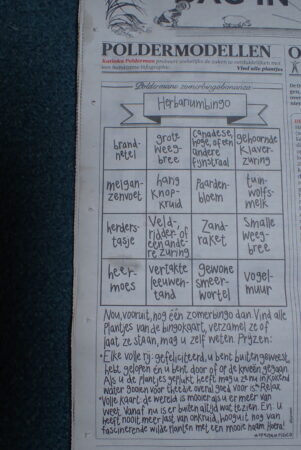 POLDERMODELLEN
Karinka Polderman
Vind alle plantjes
Herbariumbingo
brand-
netel
grote
weeg-
bree
Canadese,
hoge, of een
andere
fijnstraal
gehoornde
klaver-
zuring
melgan-
zenvoet
hang
knop-
kruid
Paarden-
bloem
tuin-
wolfs-
melk
herders-
tasje
Veld-,
ridder- of
een ande-
re zuring
Zand-
raket
Smalle
weeg-
bree
heer-
moes
vertakte
leeuwen-
tand
gewone
smeer-
wortel
Vogel-
muur
Nou, vooruit, nog één zomerbingo dan. Vind alle
plantjes van de bingokaart, verzamel ze of
laat ze staan, mag u zelf weten. Prijzen:
*Elke volle rij: gefeliciteerd, u bent buiten geweest,
hebt gelopen én u bent door of op de knieën gegaan.
Als u de plantjes geplukt heeft mag u ze nu in kokend
water gooien voor thee die overal goed voor is. Relax.
*Volle kaart: de wereld is mooier als u er meer van
weet. Vanaf nu is er buiten altijd wat te zien. En: u
heeft nooit meer last van onkruid, hooguit nog van
fascinerende wilde planten met een mooie naam. Hoera!